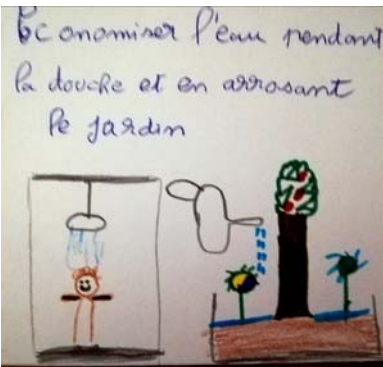 Economiser l'eau pendant
la douche et en arrosant
le jardin